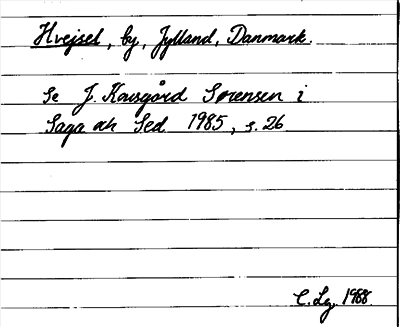 Hvejsel, by, Jylland, Danmark.
Se J. Kousgård Sørensen i
Saga och Sed 1985, s. 26
C. Lg. 1988